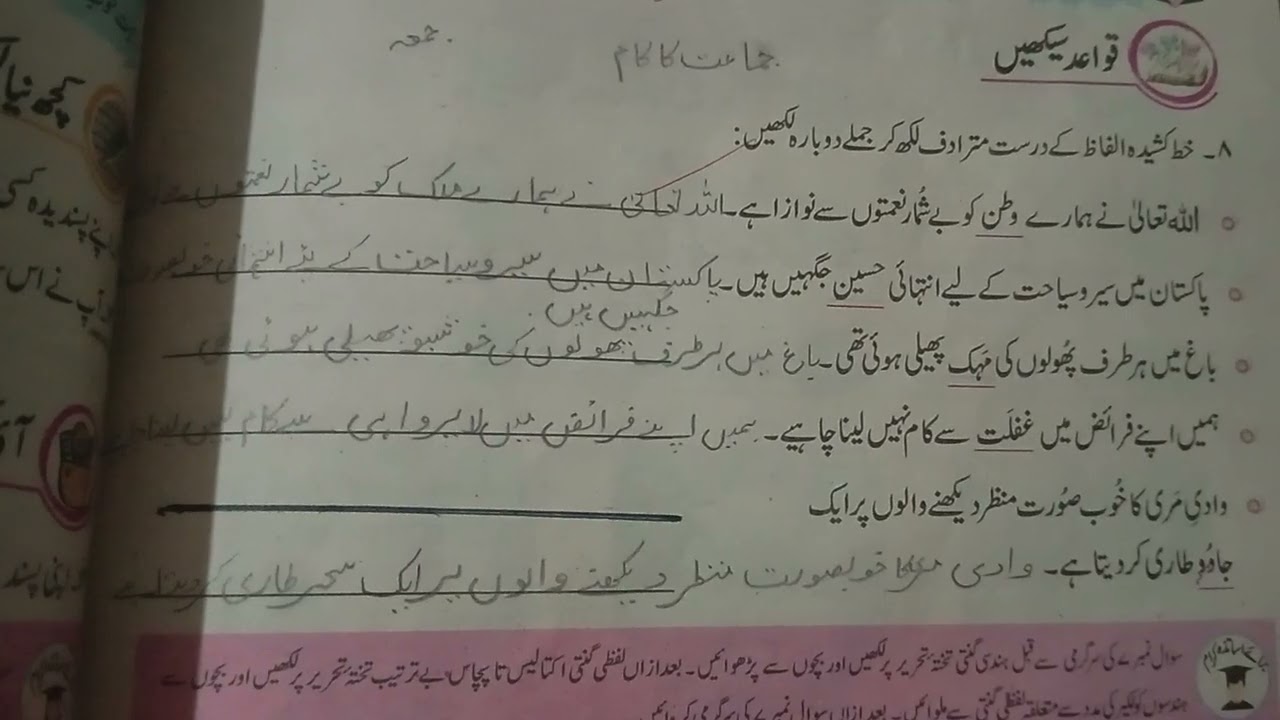 قواعد سیکھیں
جماعت کا کام
جمعہ
۸۔ خط کشیدہ الفاظ کے درست مترادف لکھ کر جملے دوبارہ لکھیں:
اللہ تعالیٰ نے ہمارے وطن کو بے شُمار نعمتوں سے نوازا ہے۔ اللہ تعالیٰ نے ہمارے ملک کو بے شمار نعمتوں
پاکستان میں سیر و سیاحت کے لیے انتہائی حسین جگہیں ہیں۔ پاکستان میں سیر و سیاحت کے لئے انتہائی خوبصورت
جگہیں ہیں۔
باغ میں ہر طرف پھُولوں کی مَہک پھیلی ہوئی تھی۔ باغ میں ہر طرف پھولوں کی خوشبو پھیلی ہوئی تھی
ہمیں اپنے فرائض میں غفلَت سے کام نہیں لینا چاہیے۔ ہمیں اپنے فرائض میں لاپرواہی سے کام نہیں لینا
وادیِ مَری کا خُوب صُورت منظر دیکھنے والوں پر ایک
جادُو طاری کر دیتا ہے۔ وادی مری کا خوبصورت منظر دیکھنے والوں پر ایک سحر طاری کر دیتا ہے
سوال نمبر ۷ کی سرگرمی سے قبل ہندسی گنتی تختۂ تحریر پر لکھیں اور بچوں سے پڑھوائیں۔ بعد ازاں لفظی گنتی اکتالیس تا پچاس بے ترتیب تختۂ تحریر پر لکھیں اور بچوں سے
ہندسوں کو لکیر کی مدد سے متعلقہ لفظی گنتی سے ملوائیں۔ بعد ازاں سوال نمبر ۷ کی سرگرمی کروائیں۔
کچھ نیا
اپنے پسندیدہ کسی
آپ نے اس